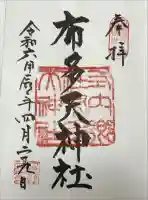 奉拝
布多天神社
令和六甲辰年四月二九日